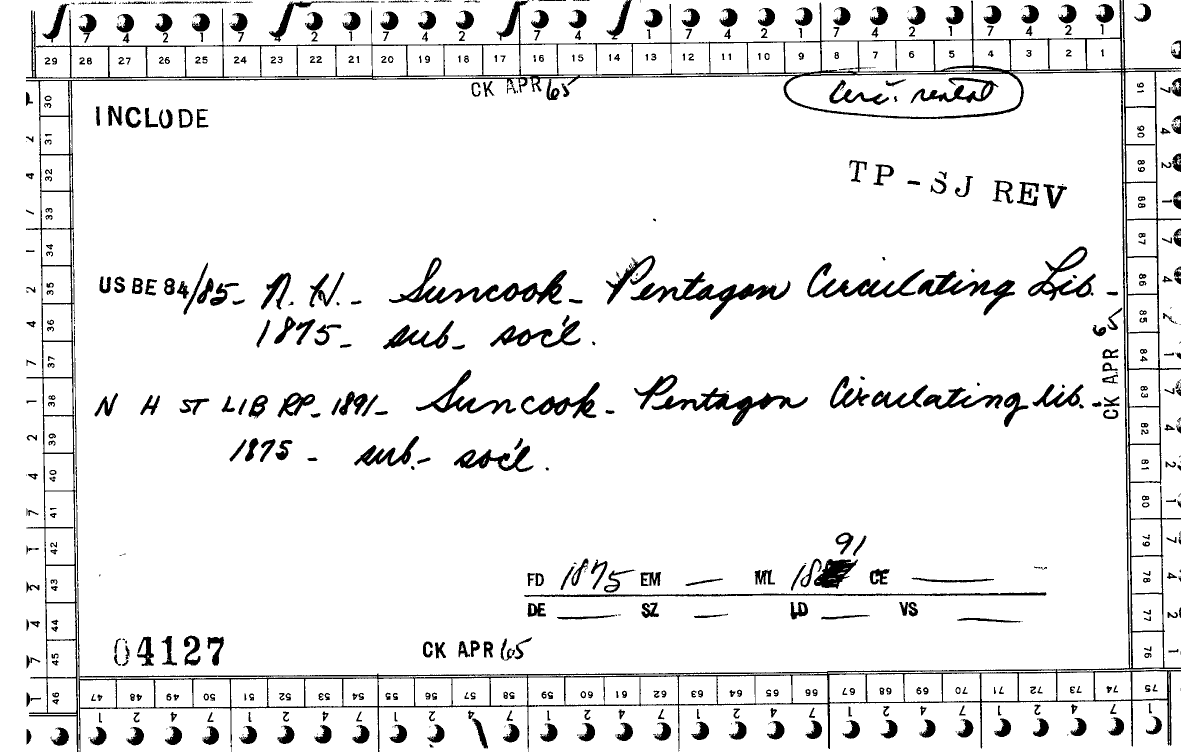 7 4 2 1 7 4 2 1 7 4 2 1 7 4 2 1 7 4 2 1 7 4 2 1 7 4 2 1
29 28 27 26 25 24 23 22 21 20 19 18 17 16 15 14 13 12 11 10 9 8 7 6 5 4 3 2 1
CK APR 65
Circ. rental
INCLUDE
TP-SJ REV
US BE 84/85- N.H. - Suncook - Pentagon Circulating Lib. -
1875 - sub - soc'l.
N H ST LIB RP - 1891 - Suncook - Pentagon Circulating lib. -
1875 - sub. - soc'l.
CK APR 65
91
FD 1875 EM — ML 18 CE —
DE — SZ — LD — VS —
04127
CK APR 65
30 31 32 33 34 35 36 37 38 39 40 41 42 43 44 45 46
91 90 89 88 87 86 85 84 83 82 81 80 79 78 77 76
47 48 49 50 51 52 53 54 55 56 57 58 59 60 61 62 63 64 65 66 67 68 69 70 71 72 73 74 75